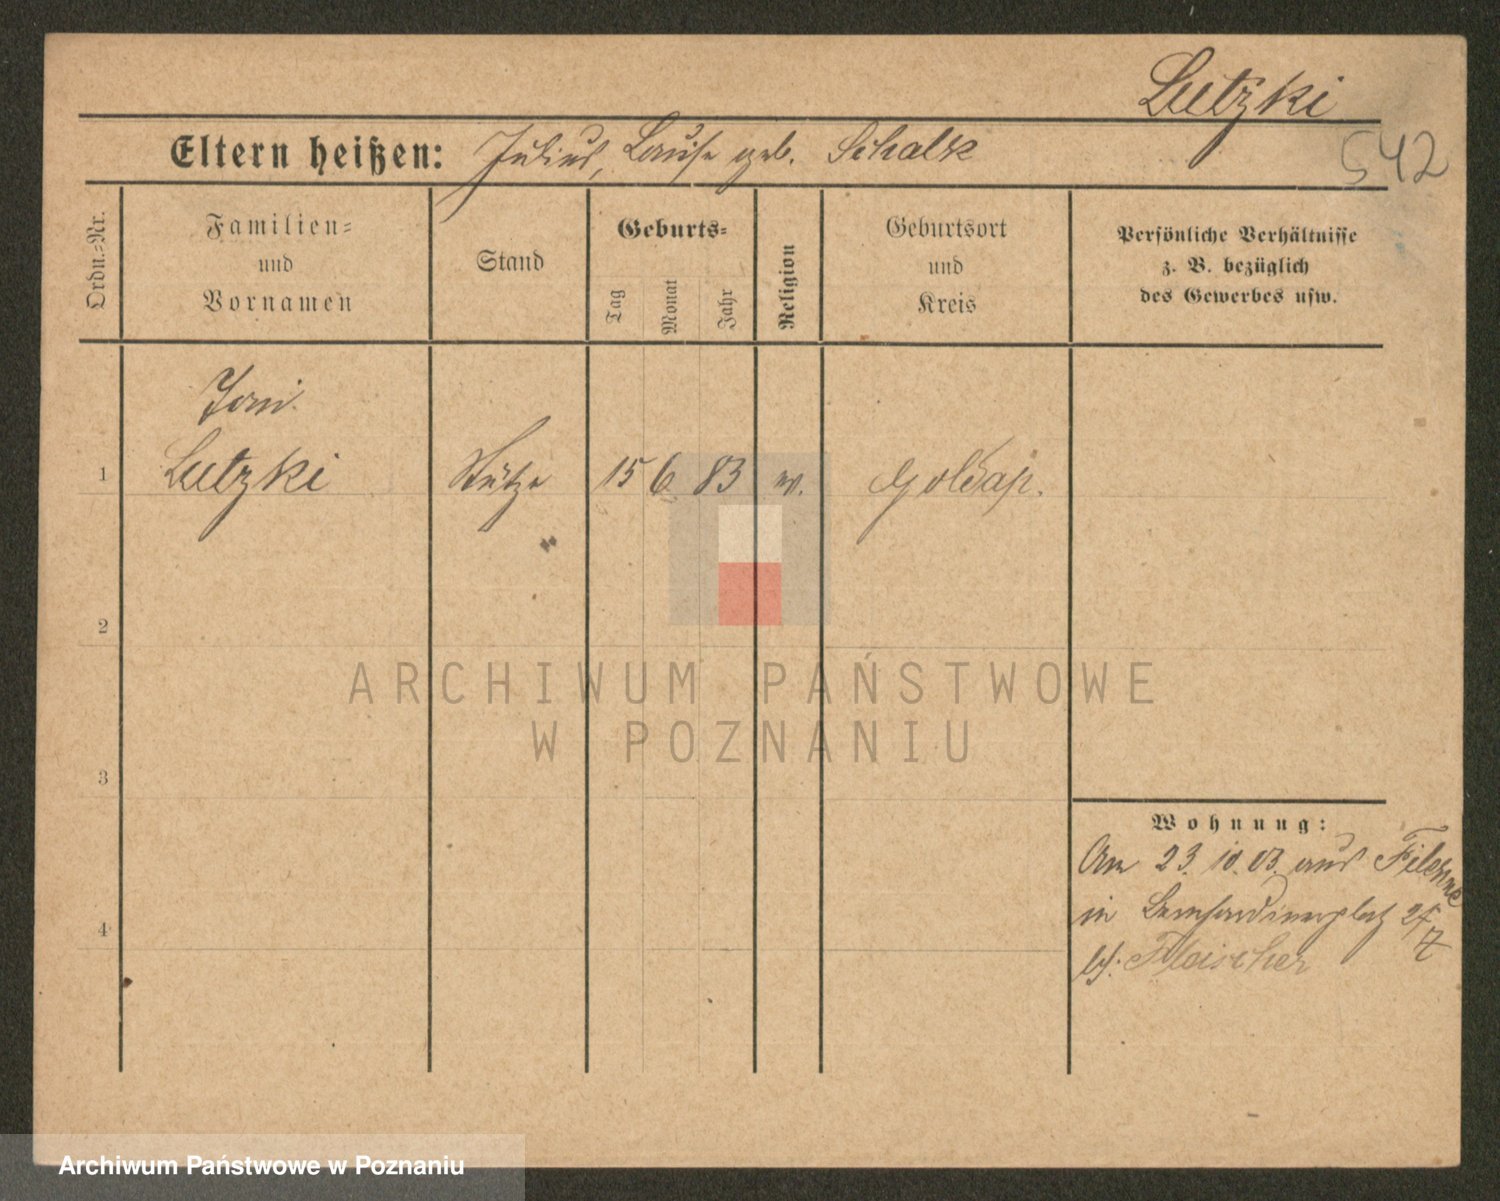 Lutzki
542
Eltern heißen: Julius, Louise geb. Schalk
Ordn.-Nr.
Familien-
und
Vornamen
Stand
Geburts-
Tag
Monat
Jahr
Religion
Geburtsort
und
Kreis
Persönliche Verhältnisse
z. B. bezüglich
des Gewerbes usw.
Toni
1 Lutzki Stütze 15 6 83 Goldap.
2
ARCHIWUM PAŃSTWOWE
W POZNANIU
3
Wohnung:
Am 23. 10. 03. aus Filehne
in Bernhardinerplatz
4
bei Fleischer
Archiwum Państwowe w Poznaniu